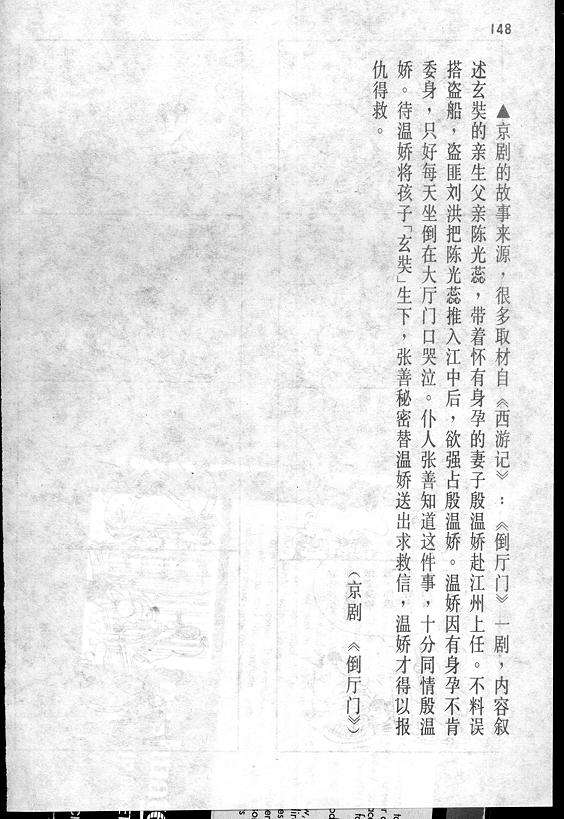 148
▲京剧的故事来源，很多取材自《西游记》：《倒厅门》一剧，内容叙
述玄奘的亲生父亲陈光蕊，带着怀有身孕的妻子殷温娇赴江州上任。不料误
搭盗船，盗匪刘洪把陈光蕊推入江中后，欲强占殷温娇。温娇因有身孕不肯
委身，只好每天坐倒在大厅门口哭泣。仆人张善知道这件事，十分同情殷温
娇。待温娇将孩子「玄奘」生下，张善秘密替温娇送出求救信，温娇才得以报
仇得救。
（京剧 《倒厅门》）